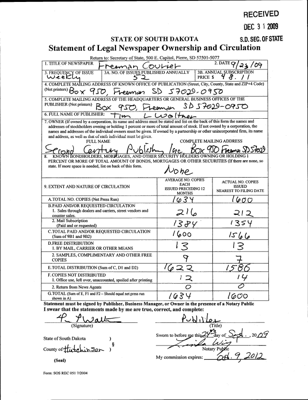 RECEIVED
DEC 31 2009
S.D. SEC. OF STATE
STATE OF SOUTH DAKOTA
Statement of Legal Newspaper Ownership and Circulation
Return to: Secretary of State, 500 E. Capitol, Pierre, SD 57501-5077
1. TITLE OF NEWSPAPER Freeman Courier DATE 9/23/09
3. FREQUENCY OF ISSUE Weekly 3A. NO. OF ISSUES PUBLISHED ANNUALLY 52 3B. ANNUAL SUBSCRIPTION PRICE $
4. COMPLETE MAILING ADDRESS OF KNOWN OFFICE OF PUBLICATION (Street, City, County, State and ZIP+4 Code) (Not printers)
Box 950, Freeman SD 57029-0950
5. COMPLETE MAILING ADDRESS OF THE HEADQUARTERS OR GENERAL BUSINESS OFFICES OF THE PUBLISHER (Not printers)
Box 950, Freeman SD 57029-0950
6. FULL NAME OF PUBLISHER: Tim L Waltner
7. OWNER (If owned by a corporation, its name and address must be stated and list on the back of this form the names and
addresses of stockholders owning or holding 1 percent or more of total amount of stock. If not owned by a corporation, the
names and addresses of the individual owners must be given. If owned by a partnership or other unincorporated firm, its name
and address, as well as that of each individual must be given.
FULL NAME COMPLETE MAILING ADDRESS
Second Century Publishing Inc Box 950 Freeman SD 57029
8. KNOWN BONDHOLDERS, MORTGAGES, AND OTHER SECURITY HOLDERS OWNING OR HOLDING 1
PERCENT OR MORE OF TOTAL AMOUNT OF BONDS, MORTGAGES OR OTHER SECURITIES (If there are none, so
state. If more space is needed, list on back of this form.
None
9. EXTENT AND NATURE OF CIRCULATION
AVERAGE NO. COPIES EACH ISSUED PRECEDING 12 MONTHS
ACTUAL NO. COPIES ISSUED NEAREST TO FILING DATE
A. TOTAL NO. COPIES (Net Press Run) 1634 1600
B. PAID AND/OR REQUESTED CIRCULATION
1. Sales through dealers and carriers, street vendors and counter sales. 216 212
2. Mail Subscription (Paid and or requested) 1384 1354
C. TOTAL PAID AND/OR REQUESTED CIRCULATION (Sum of 9B1 and 9B2) 1600 1566
D. FREE DISTRIBUTION
1. BY MAIL, CARRIER OR OTHER MEANS 13 13
2. SAMPLES, COMPLIMENTARY AND OTHER FREE COPIES 9 7
E. TOTAL DISTRIBUTION (Sum of C, D1 and D2) 1622 1586
F. COPIES NOT DISTRIBUTED
1. Office use, left over, unaccounted, spoiled after printing 12 14
2. Return from News Agents 0 0
G. TOTAL (Sum of E, F1 and F2 - Should equal net press run shown in A) 1634 1600
Statement must be signed by Publisher, Business Manager, or Owner in the presence of a Notary Public
I swear that the statements made by me are true, correct, and complete:
(Signature) Publisher (Title)
State of South Dakota )
) §
County of Hutchinson )
(Seal)
Sworn to before me this day of Sept. 2009
Notary Public
My commission expires: 9, 2012